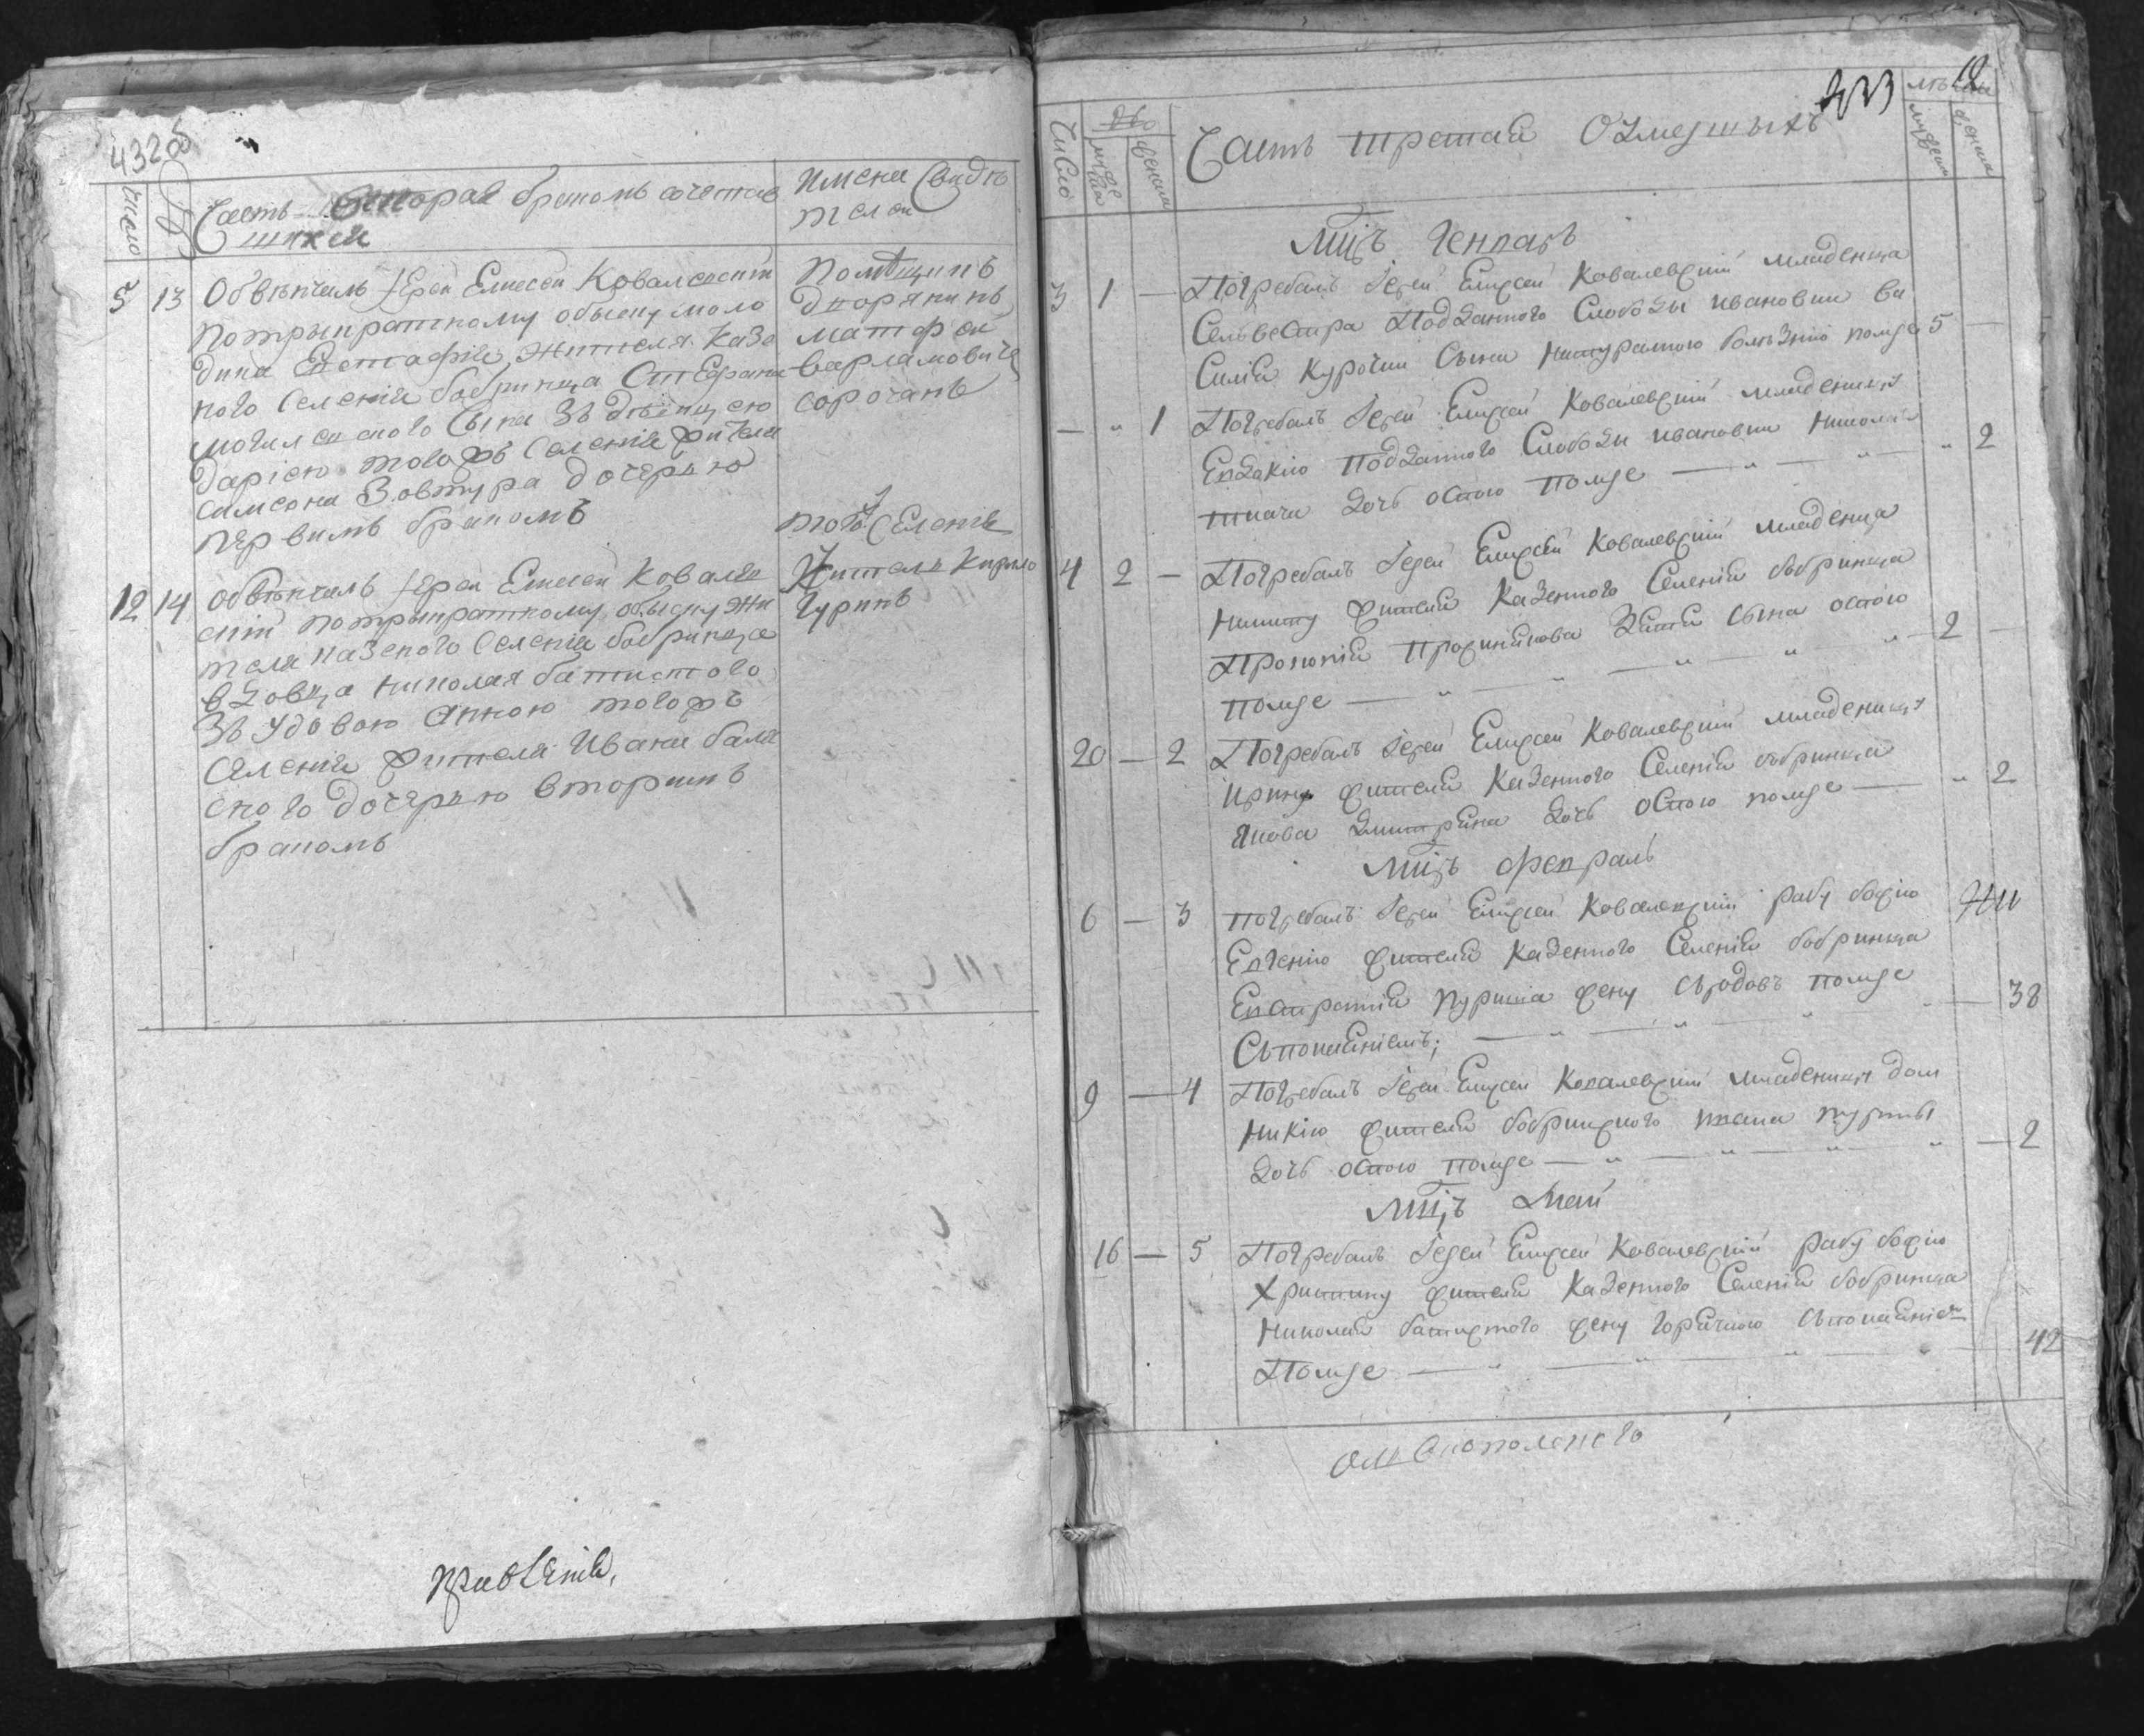 432об
Число
Часть вторая бракомъ сочетав
шихся
Имена Свидѣ
телей
5 13 Обвѣнчалъ Іерей Елисей Ковалевскій
потрыкратному обыску моло
дика Евстафія жителя Казе
ного Селенія бобринца Стефана
могилевского Сына зъ дѣвицею
Даріею тогожъ Селенія жителя
Самсона Зовтура дочерью
первимъ бракомъ
Помѣщикъ
дворянинъ
матфей
варламовичъ
сорочанъ
12 14 Обвѣнчалъ Іерей Елисей Ковалев
скій потрыкратному обыску жи
теля казеного Селенія бобринца
вдовца николая батистого
зъ удовою Анною тогожъ
Селенія жителя Ивана бала
ского дочерью вторимъ
бракомъ
того Селенія
Житель Кирило
Гуринъ
Число
мужеска
женска
Часть третая Оумершыхъ
433
лѣта
мужеска
женска
Мцъ Генварь
3 1 — Погребалъ Іерей Елисей Ковалевскій младенца
Селвестра Подданного Слободы ивановки ва
силія Курочки Сына натуралною болѣзнію помре 5 —
— „ 1 Погребалъ Іерей Елисей Ковалевскій младеницу
Евдокію Подданного Слободы ивановки николая
ткача дочь оспою помре — „ — „ 2
4 2 — Погребалъ Іерей Елисей Ковалевскій младенца
Никиту жителя Казенного Селенія бобринца
Прокопія Зятя Сына оспою
помре — „ — „ — „ — „ 2 —
20 — 2 Погребалъ Іерей Елисей Ковалевскій младеницу
Ирину жителя Казенного Селенія бобринца
Якова Дмитрика дочь оспою помре — „ 2
Мцъ Февраль
6 — 3 Погребалъ Іерей Елисей Ковалевскій рабу божію
Евгенію жителя Казенного Селенія бобринца
Евстратія жену Съродовъ помре
Съпокаяніемъ; — „ — „ — „ — 38
9 — 4 Погребалъ Іерей Елисей Ковалевскій младеницу дом
никію жителя бобринского
дочь оспою помре — „ — „ — „ — 2
Мцъ Май
16 — 5 Погребалъ Іерей Елисей Ковалевскій рабу божію
Христину жителя Казенного Селенія бобринца
Николая батистого жену горячкою Съпокаяніем
Помре — „ — „ — „ — „ — 42